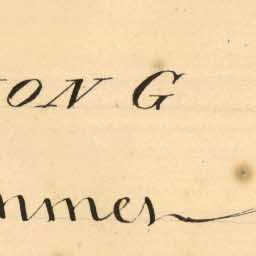 ON G
mmes